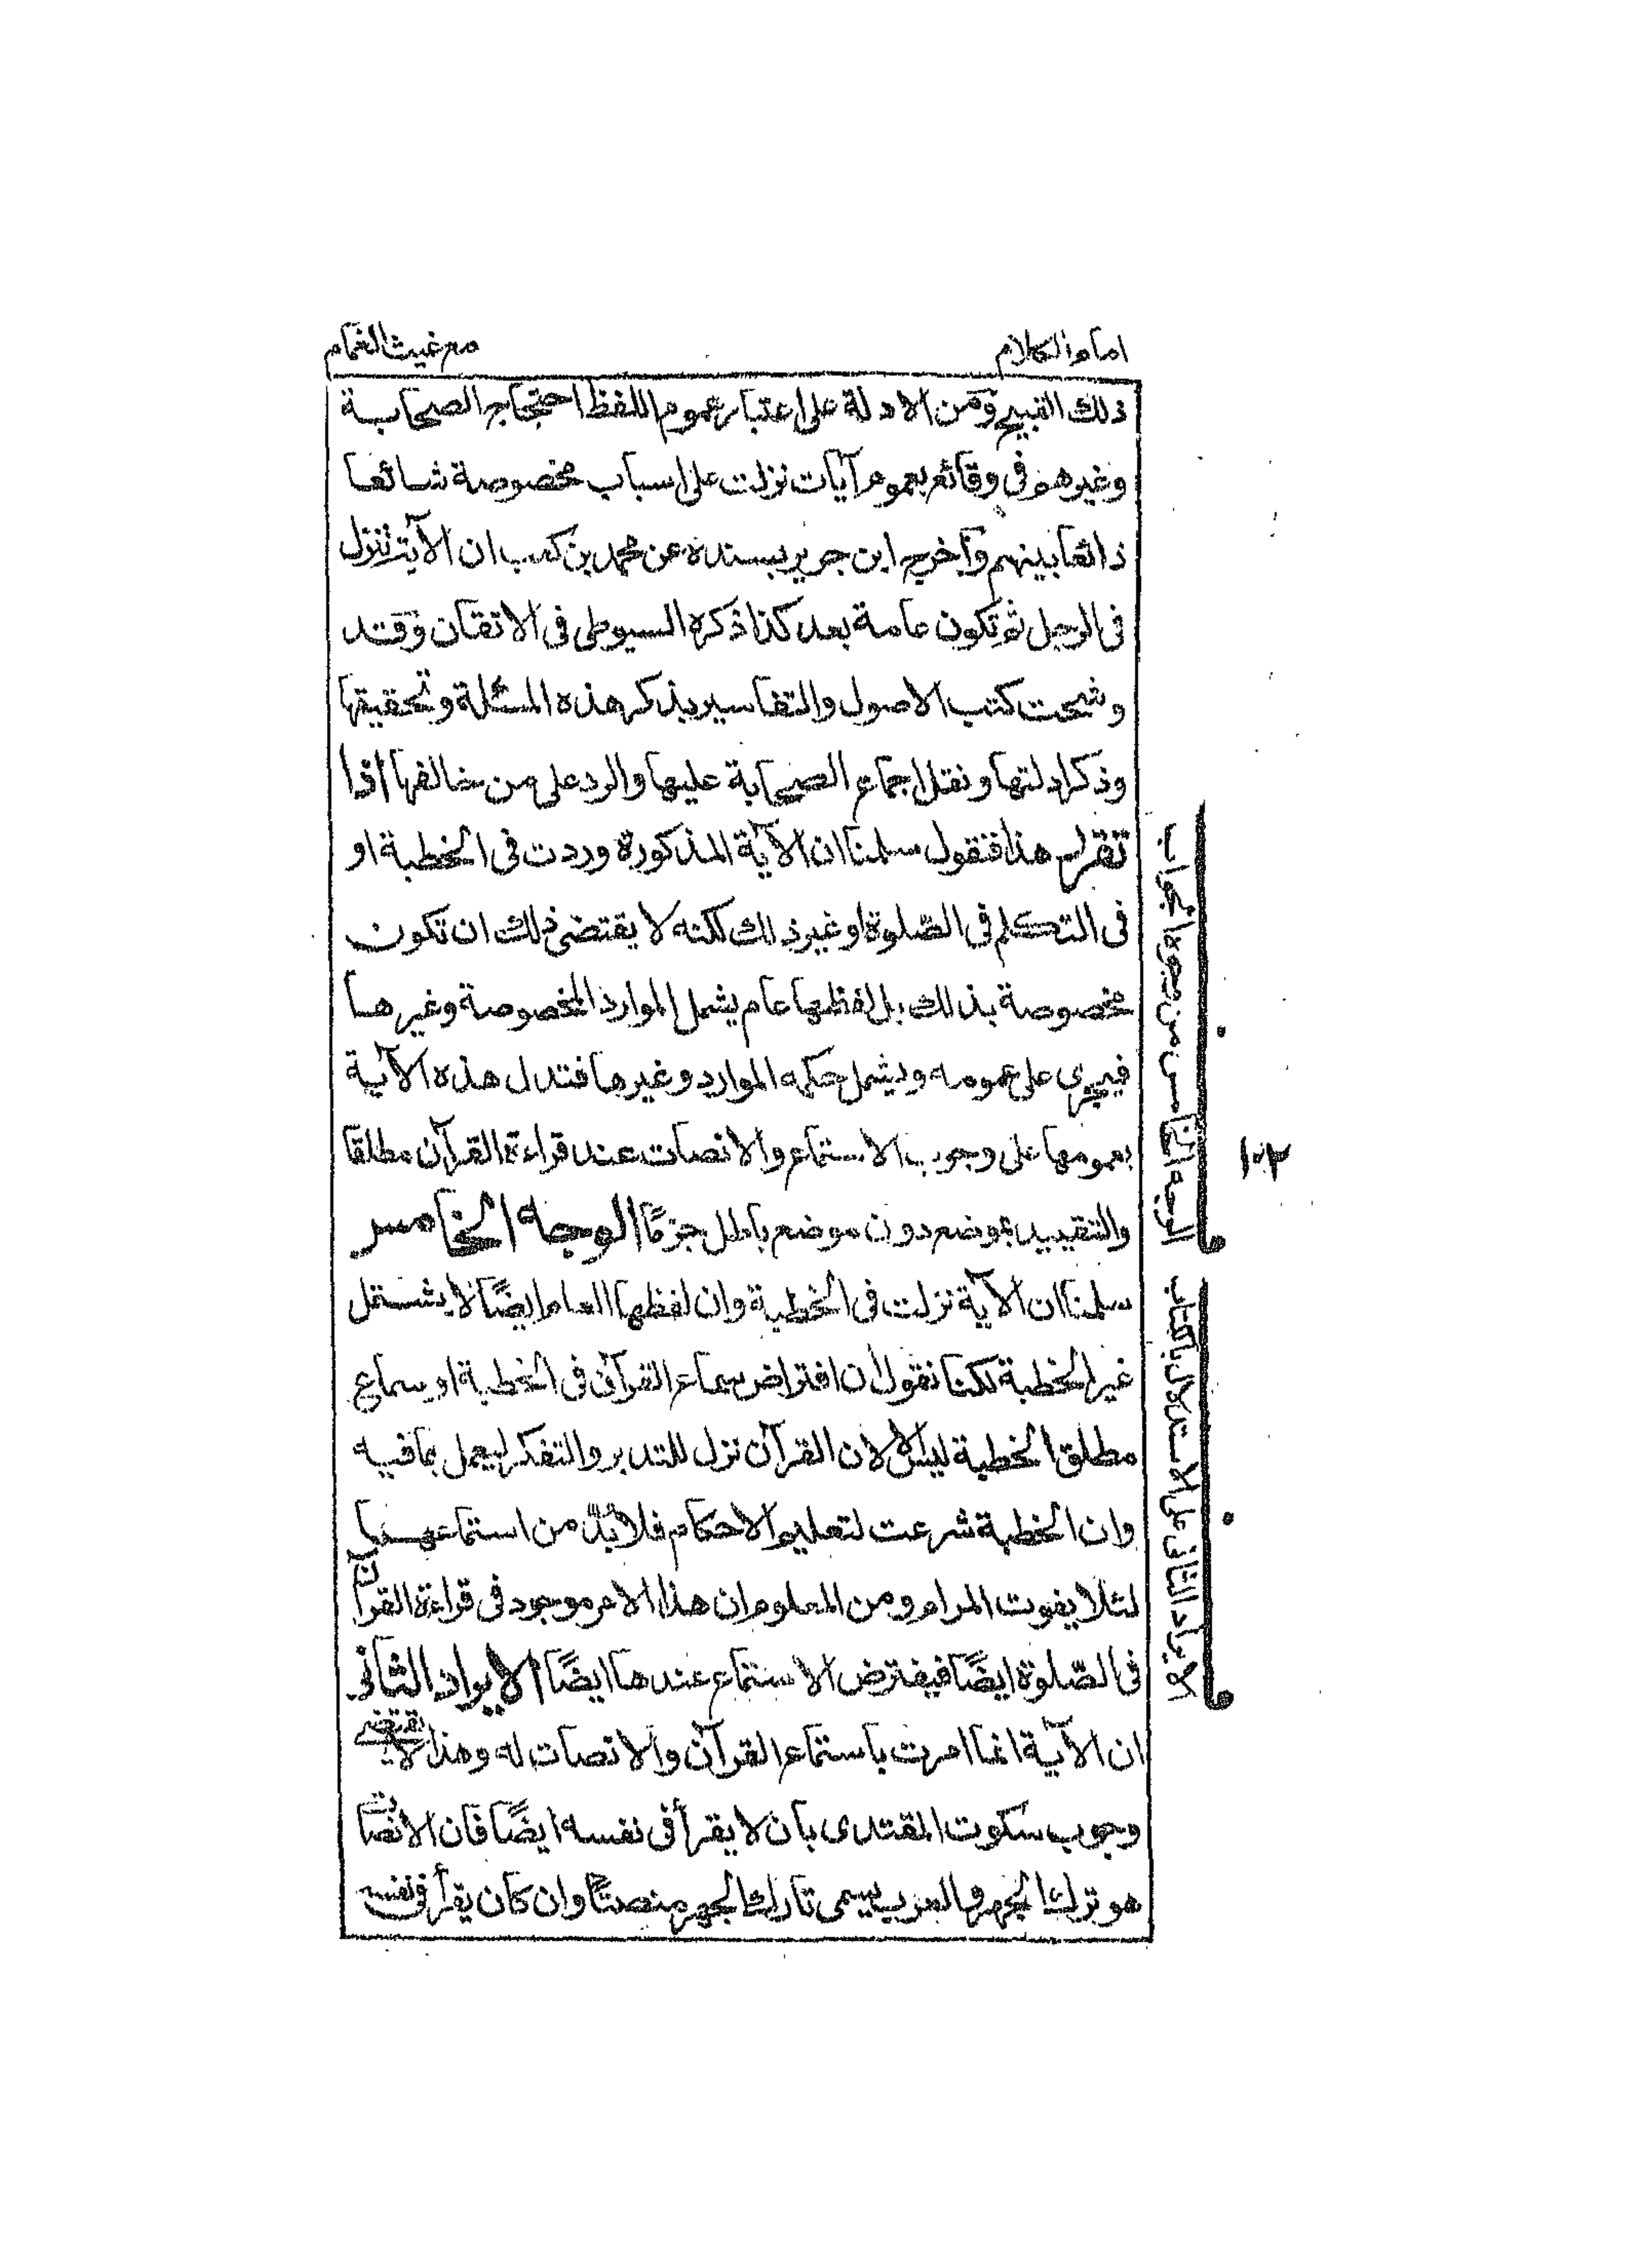 امام الكلام
مع غيث الغمام
ذلك القبيح ومن الادلة على اعتبار عموم اللفظ احتجاج الصحابة
وغيرهم فى وقائع بعموم آيات نزلت على اسباب مخصوصة شائعا
ذائعا بينهم وأخرج ابن جرير بسنده عن محمد بن كعب ان الآية تنزل
فى الرجل ثم تكون عامة بعد كذا ذكره السيوطى فى الاتقان وقد
وشحت كتب الاصول والتفاسير بذكر هذه المسئلة وتحقيقها
وذكر ادلتها ونقل اجماع الصحابة عليها والرد على من خالفها اذا
تقرر هذا فنقول سلمنا ان الآية المذكورة وردت فى الخطبة او
فى التكلم فى الصّلوة او غير ذلك لكنه لا يقتضى ذلك ان تكون
مخصوصة بذلك بل لفظها عام يشمل الموارد المخصوصة وغيرها
فيجرى على عمومه ويشمل حكمه الموارد وغيرها فتدل هذه الآية
بعمومها على وجوب الاستماع والانصات عند قراءة القرآن مطلقا
والتقييد بموضع دون موضع باطل جزمًا الوجه الخامس
سلمنا ان الآية نزلت فى الخطبة وان لفظها العام ايضًا لا يشتمل
غير الخطبة لكنا نقول ان افتراض سماع القرآن فى الخطبة او سماع
مطلق الخطبة ليس الا لان القرآن نزل للتدبر والتفكر ليعمل بما فيه
وان الخطبة شرعت لتعليم الاحكام فلابُدّ من استماعها
لئلا يفوت المرام ومن المعلوم ان هذا الامر موجود فى قراءة القرآن
فى الصّلوة ايضًا فيفترض الاستماع عندها ايضًا الايراد الثانى
ان الآية انما امرت باستماع القرآن والانصات له وهذا لا يقتضى
وجوب سكوت المقتدى بان لا يقرأ فى نفسه ايضًا فان الانصات
هو ترك الجهر والعرب يسمى تارك الجهر منصتًا وان كان يقرأ فى نفسه
الوجه الخامس من وجوه الجواب
الايراد الثانى على الاستدلال بالكتاب
١٠٢